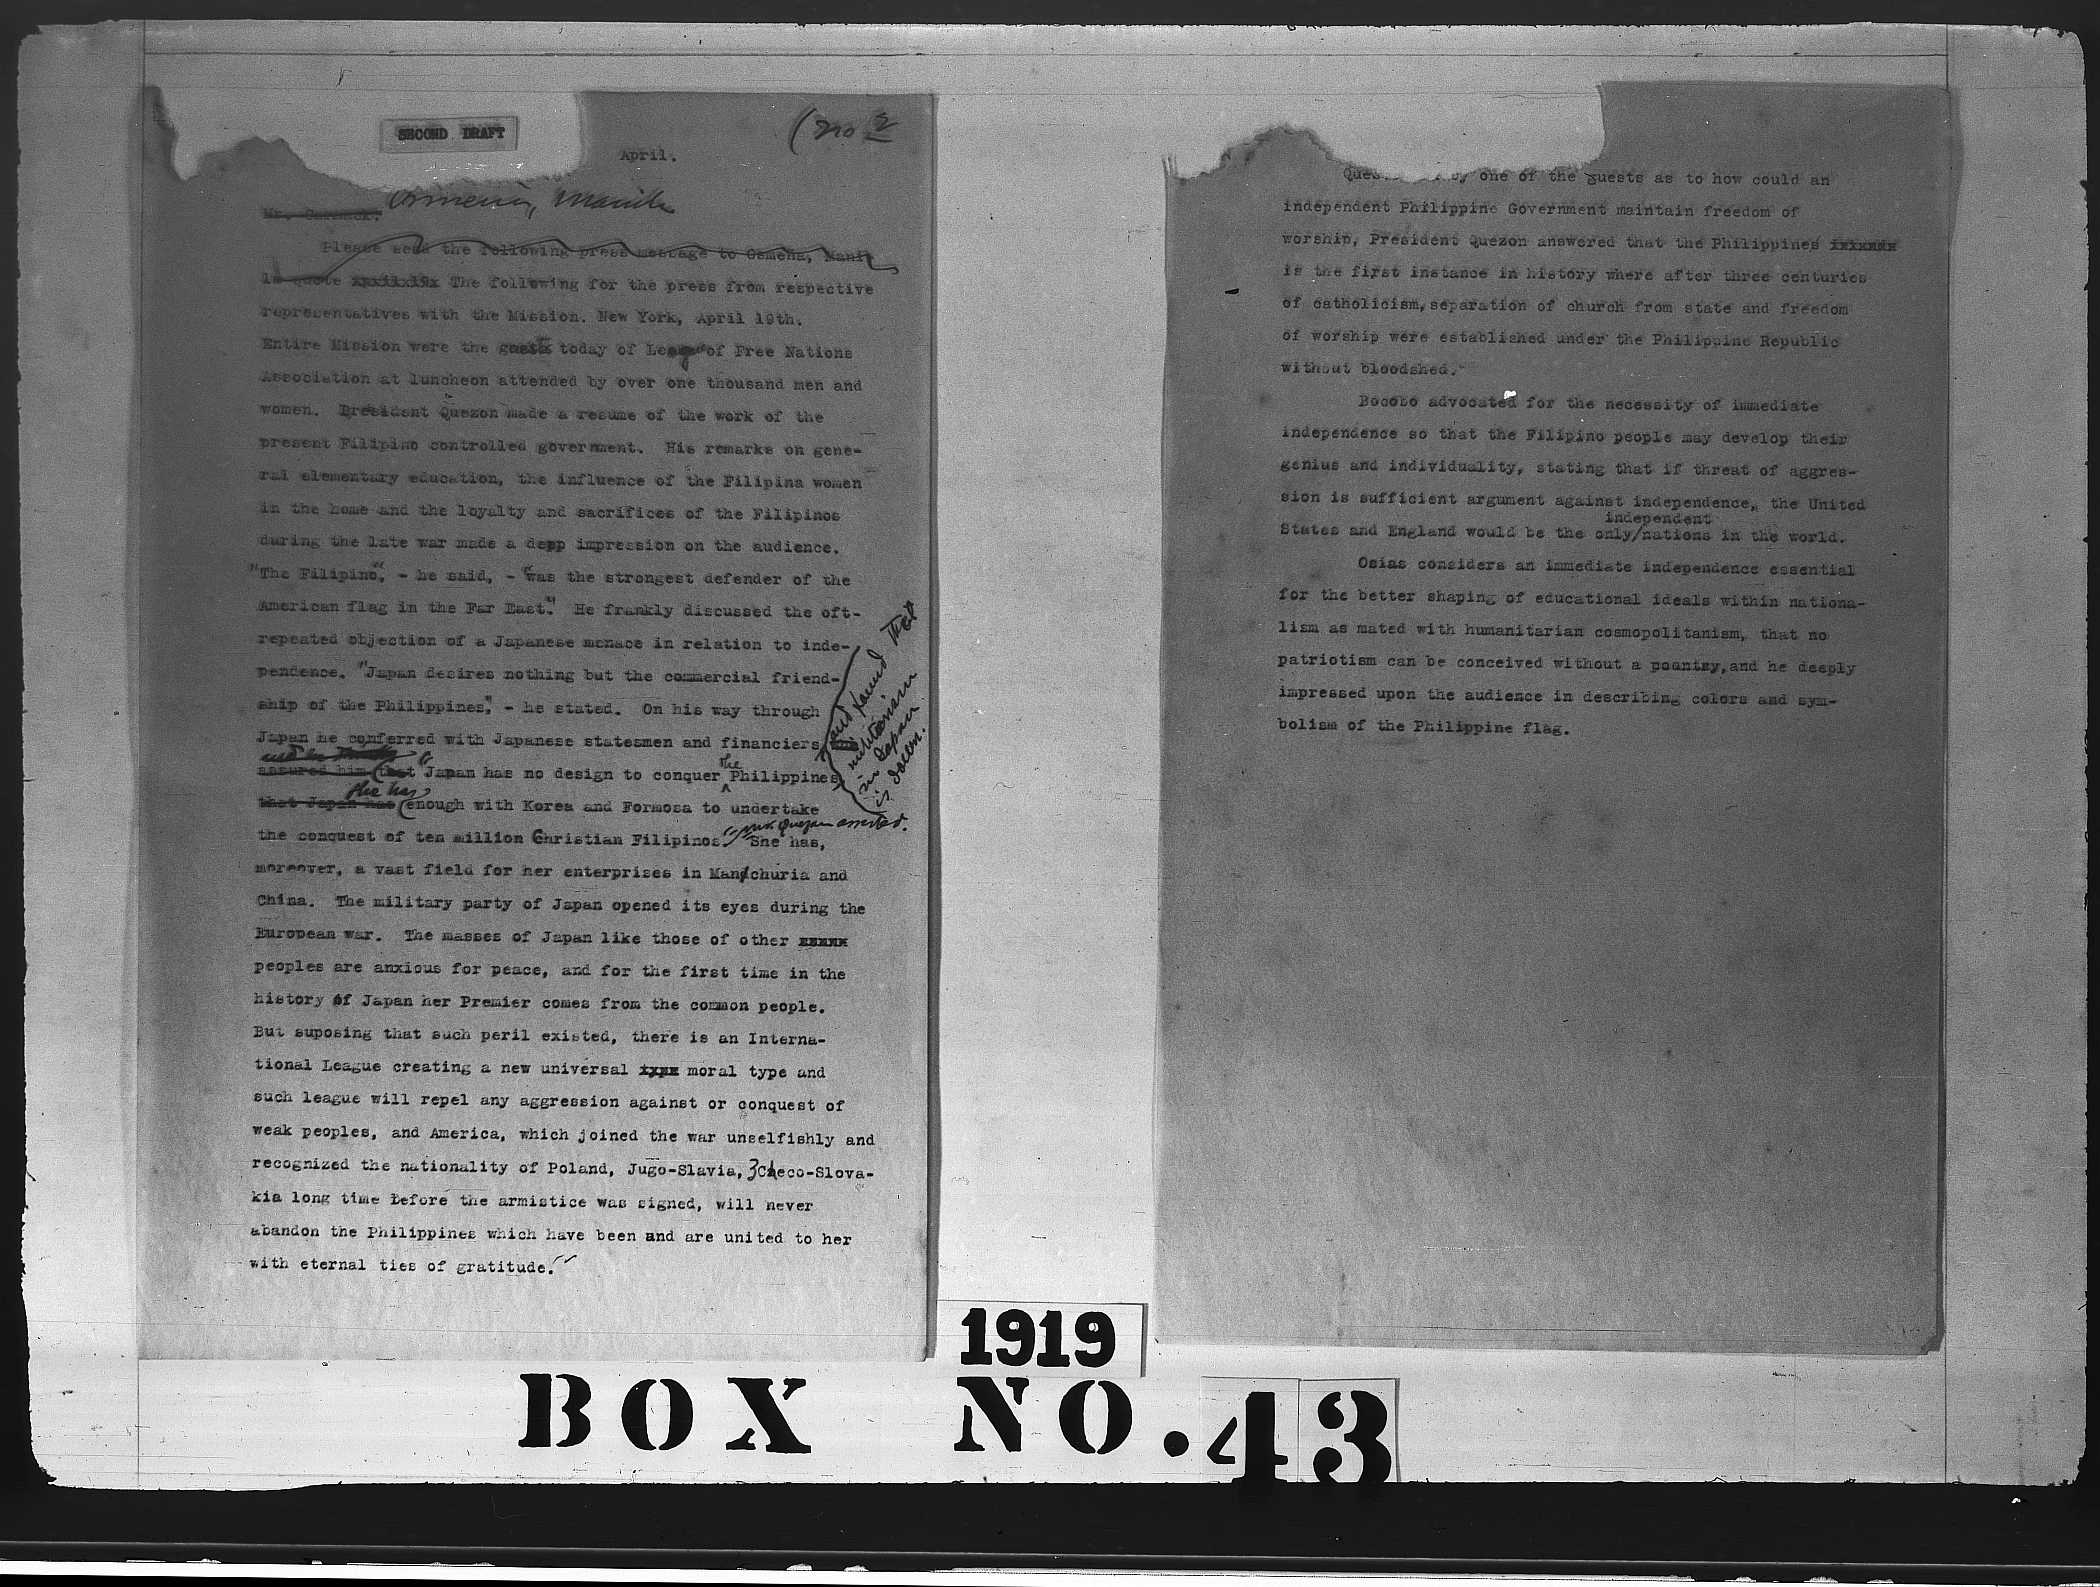 SECOND DRAFT
(no 2
April.
Manila
Mr. Carmack:
Please send the following press message to Osmena, Mani-
la quote The following for the press from respective
representatives with the Mission. New York, April 19th.
Entire Mission were the guests today of League of Free Nations
Association at luncheon attended by over one thousand men and
women. President Quezon made a resume of the work of the
present Filipino controlled government. His remarks on gene-
ral elementary education, the influence of the Filipina women
in the home and the loyalty and sacrifices of the Filipinos
during the late war made a depp impression on the audience.
"The Filipino", - he said, - "was the strongest defender of the
American flag in the Far East." He frankly discussed the oft-
repeated objection of a Japanese menace in relation to inde-
pendence. "Japan desires nothing but the commercial friend-
ship of the Philippines," - he stated. On his way through
Japan he conferred with Japanese statesmen and financiers
and found that
militarism
in Japan
is down.
assured him that "Japan has no design to conquer the Philippines
that Japan has she has enough with Korea and Formosa to undertake
the conquest of ten million Christian Filipinos" Quezon asserted. "She has,
moreover, a vast field for her enterprises in Manchuria and
China. The military party of Japan opened its eyes during the
European war. The masses of Japan like those of other xxxxx
peoples are anxious for peace, and for the first time in the
history of Japan her Premier comes from the common people.
But suposing that such peril existed, there is an Interna-
tional League creating a new universal moral type and
such league will repel any aggression against or conquest of
weak peoples, and America, which joined the war unselfishly and
recognized the nationality of Poland, Jugo-Slavia, Checo-Slova-
kia long time before the armistice was signed, will never
abandon the Philippines which have been and are united to her
with eternal ties of gratitude."
by one of the guests as to how could an
independent Philippine Government maintain freedom of
worship, President Quezon answered that the Philippines xxxxxxx
is the first instance in history where after three centuries
of catholicism, separation of church from state and freedom
of worship were established under the Philippine Republic
without bloodshed.
Bocobo advocated for the necessity of immediate
independence so that the Filipino people may develop their
genius and individuality, stating that if threat of aggres-
sion is sufficient argument against independence, the United
States and England would be the only/independent nations in the world.
Osias considers an immediate independence essential
for the better shaping of educational ideals within nationa-
lism as mated with humanitarian cosmopolitanism, that no
patriotism can be conceived without a pountry, and he deeply
impressed upon the audience in describing colors and sym-
bolism of the Philippine flag.
1919
BOX NO. 43